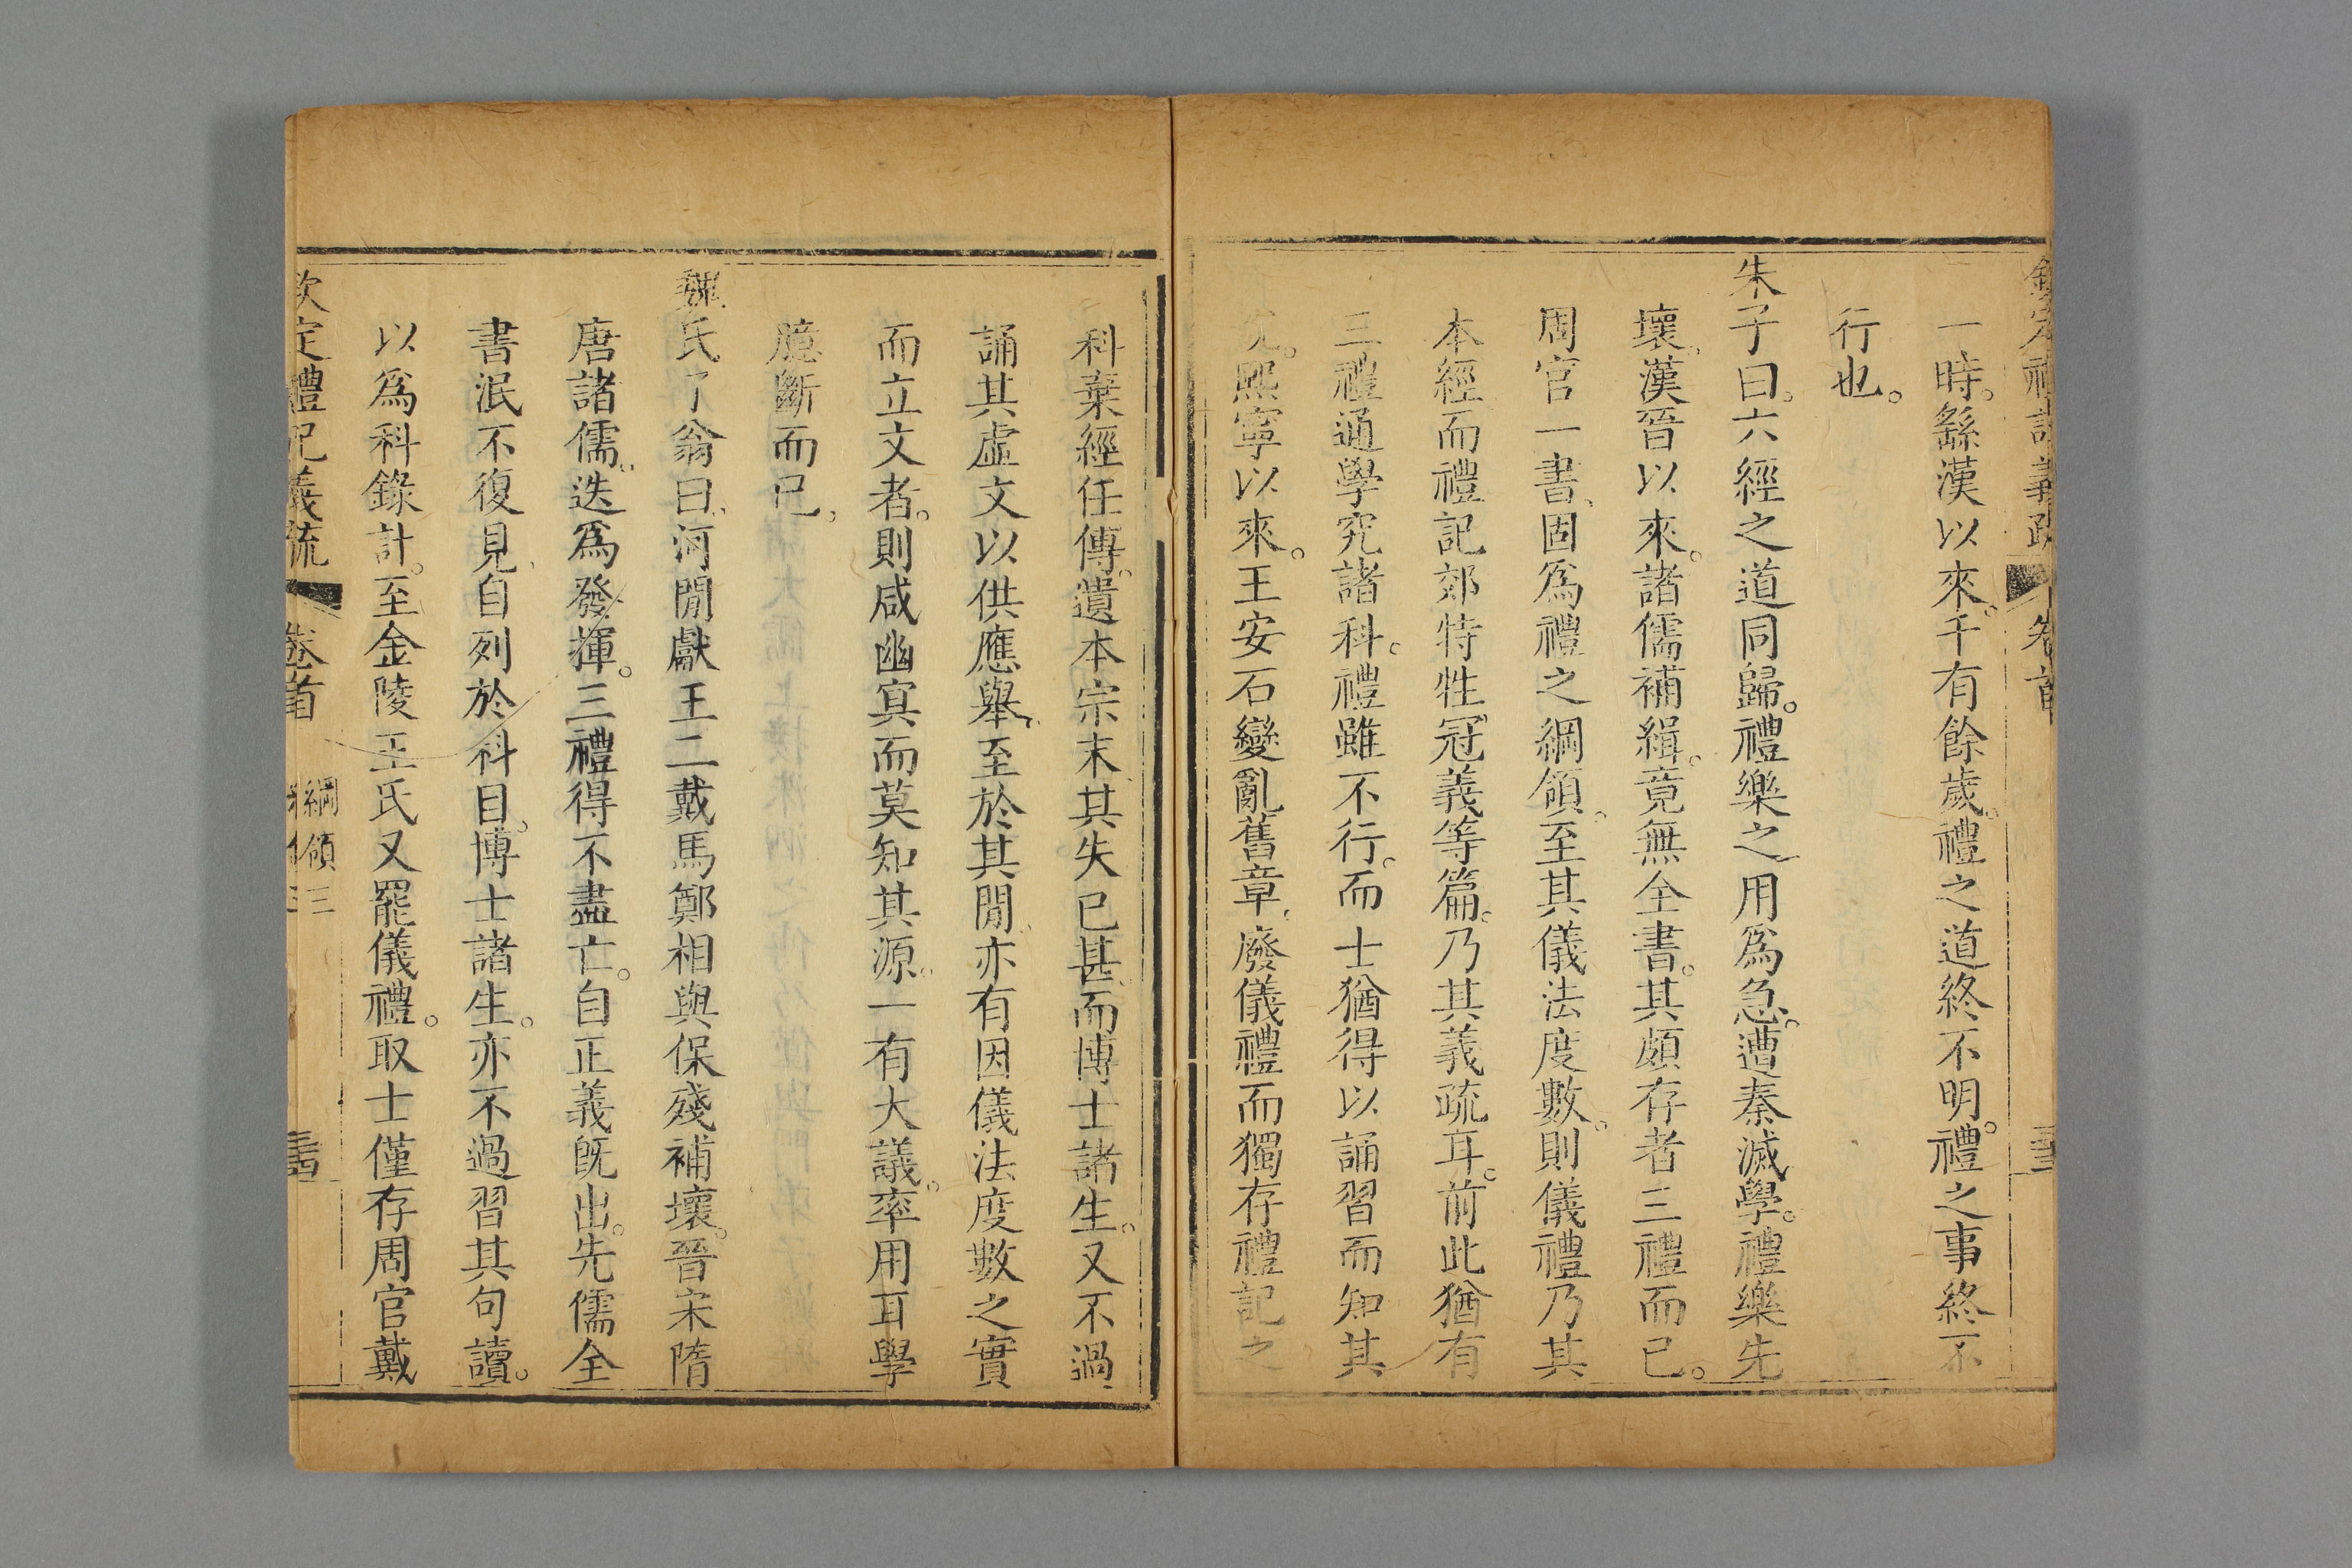 欽定禮記義疏 卷首
一時。繇漢以來。千有餘歲。禮之道終不明。禮之事終不
行也。
朱子曰。六經之道同歸。禮樂之用爲急。遭秦滅學。禮樂先
壞。漢晉以來。諸儒補緝。竟無全書。其頗存者三禮而已。
周官一書、固爲禮之綱領。至其儀法度數。則儀禮乃其
本經而禮記郊特牲、冠義等篇。乃其義疏耳。前此猶有
三禮通學究諸科。禮雖不行。而士猶得以誦習而知其
說。熙寧以來。王安石變亂舊章、廢儀禮而獨存禮記之
科棄經任傳。遺本宗末、其失已甚、而博士諸生。又不過
誦其虛文以供應舉、至於其閒、亦有因儀法度數之實
而立文者。則咸幽冥而莫知其源。一有大議。率用耳學
臆斷而已、
魏氏了翁曰、河閒獻王二戴馬鄭相與保殘補壞。晉宋隋
唐諸儒。迭爲發揮。三禮得不盡亡。自正義旣出。先儒全
書泯不復見、自列於科目。博士諸生。亦不過習其句讀。
以爲科錄計。至金陵王氏又罷儀禮。取士僅存周官戴
欽定禮記義疏 卷首 綱領三